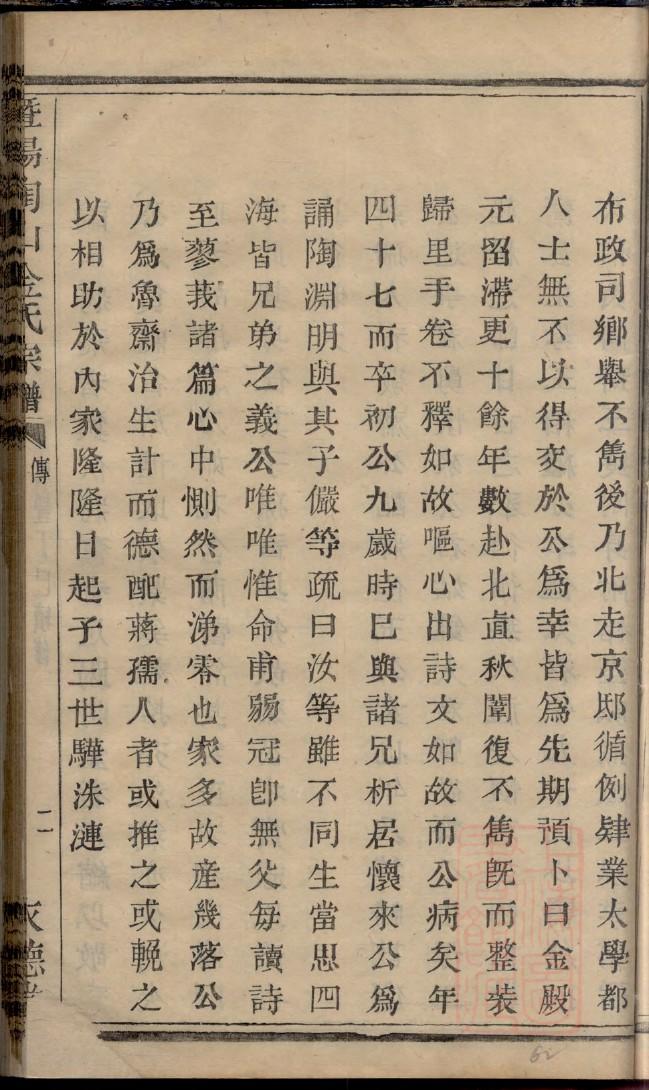 布政司鄉舉不雋後乃北走京邸循例肄業太學都
人士無不以得交於公爲幸皆爲先期預卜曰金殿
元畱滯更十餘年數赴北直秋闈復不雋旣而整裝
歸里手卷不釋如故嘔心出詩文如故而公病矣年
四十七而卒初公九歲時巳與諸兄析居懷來公爲
誦陶淵明與其子儼等疏曰汝等雖不同生當思四
海皆兄弟之義公唯唯惟命甫弱冠卽無父每讀詩
至蓼莪諸篇心中惻然而涕零也家多故産幾落公
乃爲魯齋治生計而德配蔣孺人者或推之或輓之
以相助於內家隆隆日起子三世驊洙漣
暨陽陶山金氏宗譜
傳
二
62